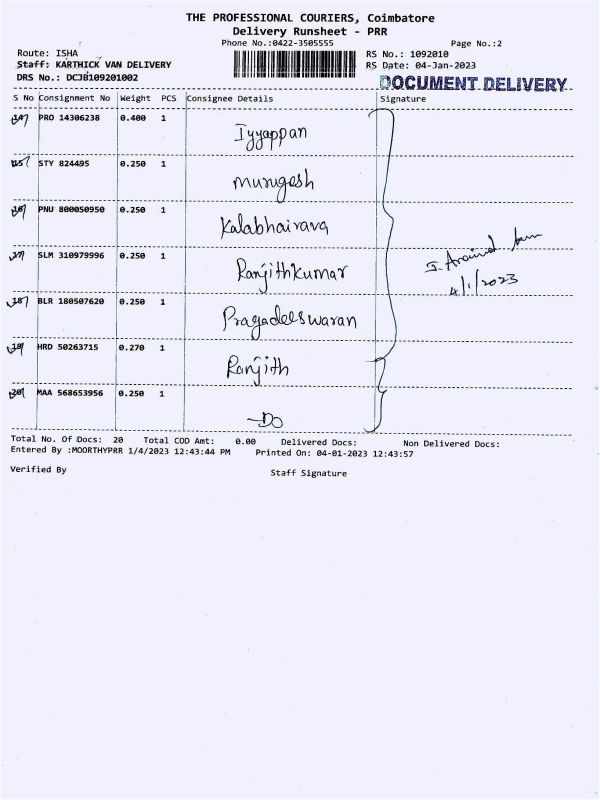 THE PROFESSIONAL COURIERS, Coimbatore
Delivery Runsheet - PRR
Phone No.:0422-3505555 Page No.:2
Route: ISHA RS No.: 1092010
Staff: KARTHICK VAN DELIVERY RS Date: 04-Jan-2023
DRS No.: DCJB109201002
DOCUMENT DELIVERY
S No Consignment No Weight PCS Consignee Details Signature
14 PRO 14306238 0.400 1 Iyyappan
15 STY 824495 0.250 1 murugesh
16 PNU 800050950 0.250 1 Kalabhairava
17 SLM 310979996 0.250 1 Ranjithkumar
S. Aravind
4/1/2023
18 BLR 180507620 0.250 1 Pragadeeswaran
19 HRD 50263715 0.270 1 Ranjith
20 MAA 568653956 0.250 1 -Do
Total No. Of Docs: 20 Total COD Amt: 0.00 Delivered Docs: Non Delivered Docs:
Entered By :MOORTHYPRR 1/4/2023 12:43:44 PM Printed On: 04-01-2023 12:43:57
Verified By Staff Signature